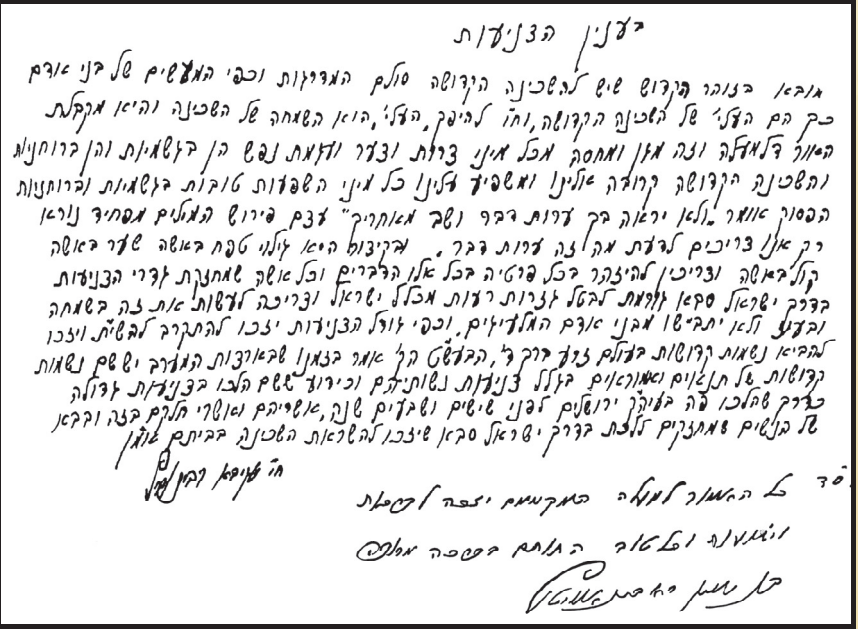 בענין הצניעות
מובא בזוהר הקדוש שיש להשכינה הקדושה סולם המדרגות וכפי המעשים של בני אדם
כך הם העלי' של השכינה הקדושה, וח"ו להיפך, העלי', הוא השמחה של השכינה והיא מקבלת
האור דלמעלה וזה מגן ומחסה מכל מיני צרות וצער ועגמת נפש הן בגשמיות והן ברוחניות
והשכינה הקדושה קרובה אלינו ומשפיע עלינו כל מיני השפעות טובות בגשמיות וברוחניות
הפסוק אומר "ולא יראה בך ערות דבר ושב מאחריך" עצם פירוש המילים מפחיד נורא
רק אנו צריכים לדעת מה זה ערות דבר. ובקיצור היא גילוי טפח באשה שער באשה
קול באשה וצריכין להיזהר בכל פרטיה בכל אלו הדברים וכל אשה שמחזקת גדרי הצניעות
בדרך ישראל סבא גורמת לבטל גזרות רעות מכלל ישראל וצריכה לעשות את זה בשמחה
ובעוז ולא יתביישו מבני אדם המלעיגים, וכפי גודל הצניעות יזכו להתקרב להשי"ת ויזכו
להביא נשמות קדושות בעולם זרע ברך ד', הבעש"ט הק' אמר בזמנו שבארצות המערב יש שם נשמות
קדושות של תנאים ואמוראים בגלל צניעות נשותיהם וכידוע ששם הלכו בצניעות גדולה
כדרך שהלכו פה בעיה"ק ירושלים לפני שישים ושבעים שנה, אשריהם ואשרי חלקם בזה ובבא
של הנשים שמחזקים ללכת בדרך ישראל סבא שיזכו להשראת השכינה בביתם אמן
כל האמור למעלה
וישועה וכל טוב החותם בברכה